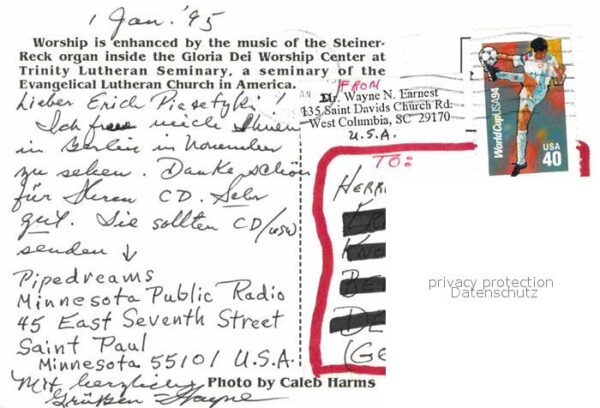 1 Jan. '95
Worship is enhanced by the music of the Steiner-
Reck organ inside the Gloria Dei Worship Center at
Trinity Lutheran Seminary, a seminary of the
Evangelical Lutheran Church in America.
Lieber Erich Piasetzki!
Ich freue mich Ihnen
in Berlin in November
zu sehen. Danke schön
für Ihren CD. Sehr
gut. Sie sollten CD/usw
senden ↓
Pipedreams
Minnesota Public Radio
45 East Seventh Street
Saint Paul
Minnesota 55101 U.S.A.
Mit herzlichen
Grüßen Wayne
Photo by Caleb Harms
FROM
Dr. Wayne N. Earnest
135 Saint Davids Church Rd.
West Columbia, SC 29170
U.S.A.
WorldCupUSA94
USA
40
TO:
HERR
(GE
privacy protection
Datenschutz